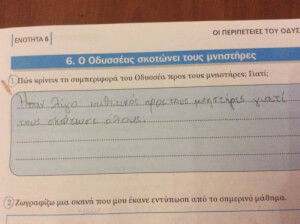 ΕΝΟΤΗΤΑ 6
ΟΙ ΠΕΡΙΠΕΤΕΙΕΣ ΤΟΥ ΟΔΥΣ
6. Ο Οδυσσέας σκοτώνει τους μνηστήρες
1 Πώς κρίνεις τη συμπεριφορά του Οδυσσέα προς τους μνηστήρες; Γιατί;
Ήταν λίγο προς τους μνηστήρες γιατί
τους σκότωσε όλους.
2 Ζωγραφίζω μια σκηνή που μου έκανε εντύπωση από το σημερινό μάθημα.